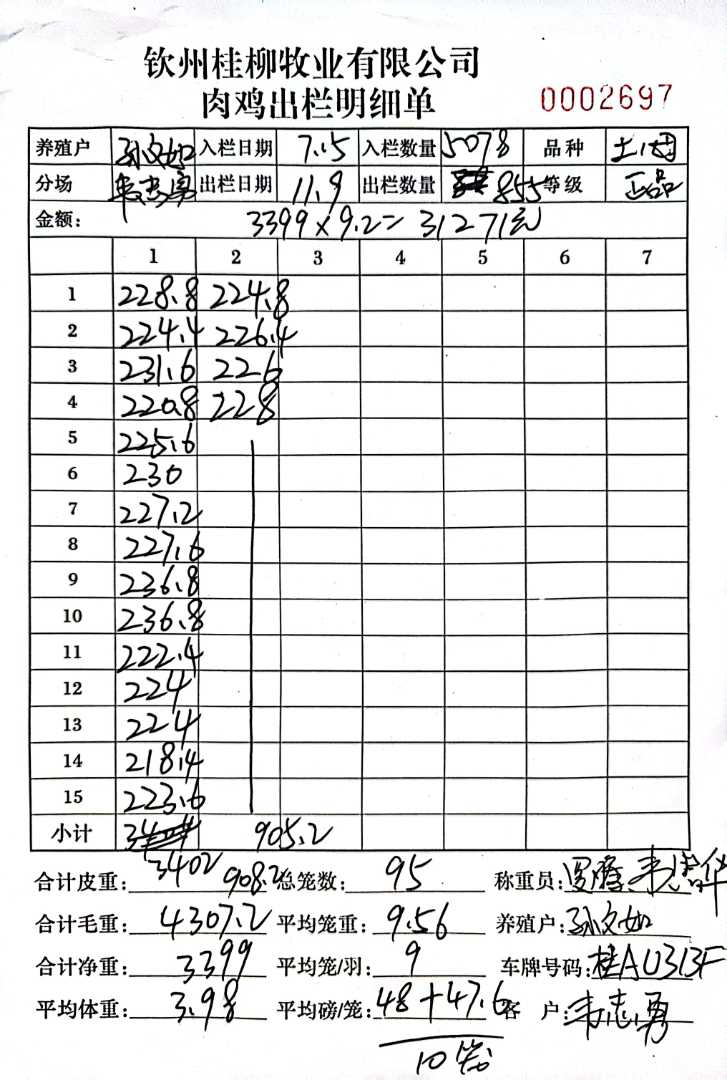 钦州桂柳牧业有限公司
肉鸡出栏明细单 0002697
养殖户 孙文如 入栏日期 7.15 入栏数量 5078 品种 土1号
分场 韦志勇 出栏日期 11.9 出栏数量 855 等级 正品
金额: 3399×9.2= 31271元
1 2 3 4 5 6 7
1 228.8 224.8
2 224.4 226.4
3 231.6 226
4 220.8 228
5 225.6
6 230
7 227.2
8 227.6
9 236.8
10 236.8
11 222.4
12 224
13 224
14 218.4
15 223.6
小计 905.2
3402
合计皮重: 908.2 总笼数: 95 称重员:
合计毛重: 4307.2 平均笼重: 9.56 养殖户: 孙文如
合计净重: 3399 平均笼/羽: 9 车牌号码: 桂AU313F
平均体重: 3.98 平均磅/笼: 48+47.6 客 户: 韦志勇
10笼